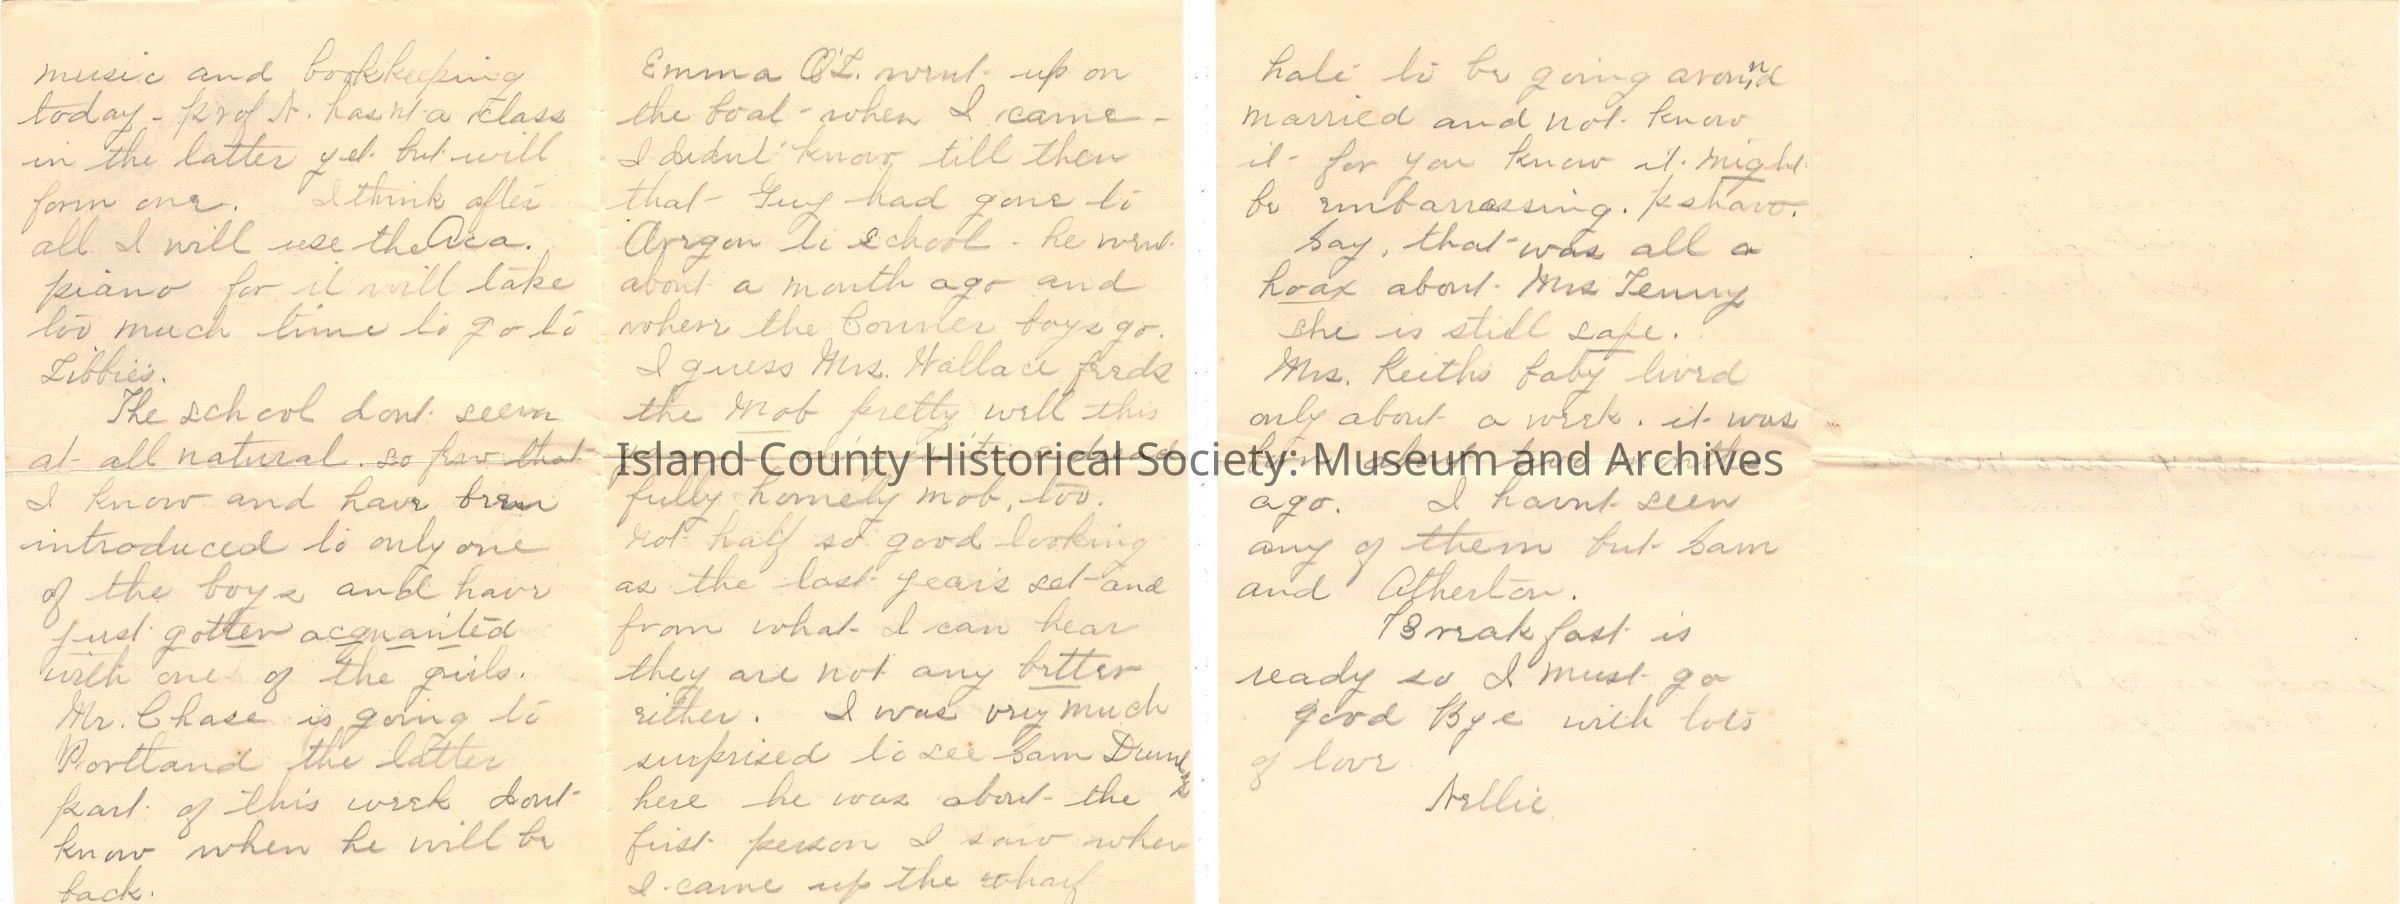 music and bookkeeping
today - prof N. hasnt a class
in the latter yet but will
form one. I think after
all I will use the Aca.
piano for it will take
too much time to go to
Libbies.
The school dont seem
at all natural. so few that
I know and have been
introduced to only one
of the boys and have
just gotten acquaited
with one of the girls.
Mr. Chase is going to
Portland the latter
part of this week dont
know when he will be
back.
Emma O'L. went up on
the boat - when I came -
I didnt know till then
that Guy had gone to
Oregon to school - he went
about a month ago and
where the Conner boys go.
I guess Mrs. Wallace feeds
the Mob pretty well this
Island County Historical Society: Museum and Archives
fully homely mob, too.
not half so good looking
as the last year's set and
from what I can hear
they are not any better
either. I was very much
surprised to see Sam
here he was about the
first person I saw when
I came up the wharf
hate to be going around
married and not know
it - for you know it might
be embarrassing. pshaw.
Say, that was all a
hoax about Mrs Tenny
she is still safe.
Mrs. Keiths baby lived
only about a week. it was
ago. I havnt seen
any of them but Sam
and Atherton.
Breakfast is
ready so I must go
good Bye with lots
of love
Nellie